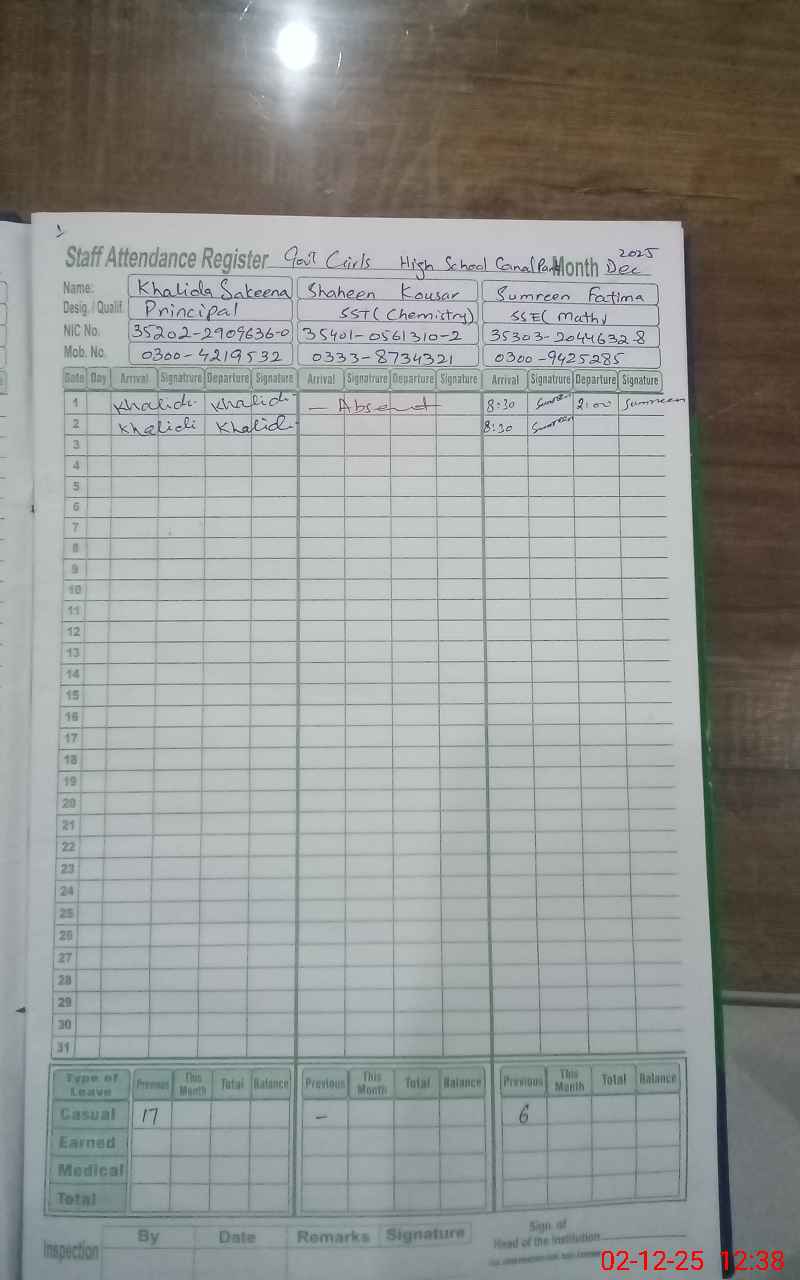 1
Staff Attendance Register Govt Girls High School Canal Park Month Dec 2025
Name: Khalida Sakeena Shaheen Kousar Sumreen Fatima
Desig. / Qualif. Principal SST ( Chemistry) SSE( Math)
NIC No. 35202-2909636-0 35401-0561310-2 35303-2044632-8
Mob. No. 0300-4219532 0333-8734321 0300-9425285
Date Day Arrival Signatrure Departure Signature Arrival Signatrure Departure Signature Arrival Signatrure Departure Signature
1 Khalid Khalid - Absent 8:30 Sumreen 2:00 Sumreen
2 Khalid Khalid 8:30 Sumreen
3
4
5
6
7
8
9
10
11
12
13
14
15
16
17
18
19
20
21
22
23
24
25
26
27
28
29
30
31
Type of Leave Previous This Month Total Balance Previous This Month Total Balance Previous This Month Total Balance
Casual 17 - 6
Earned
Medical
Total
Inspection By Date Remarks Signature Sign. of
Head of the Institution
02-12-25 12:38